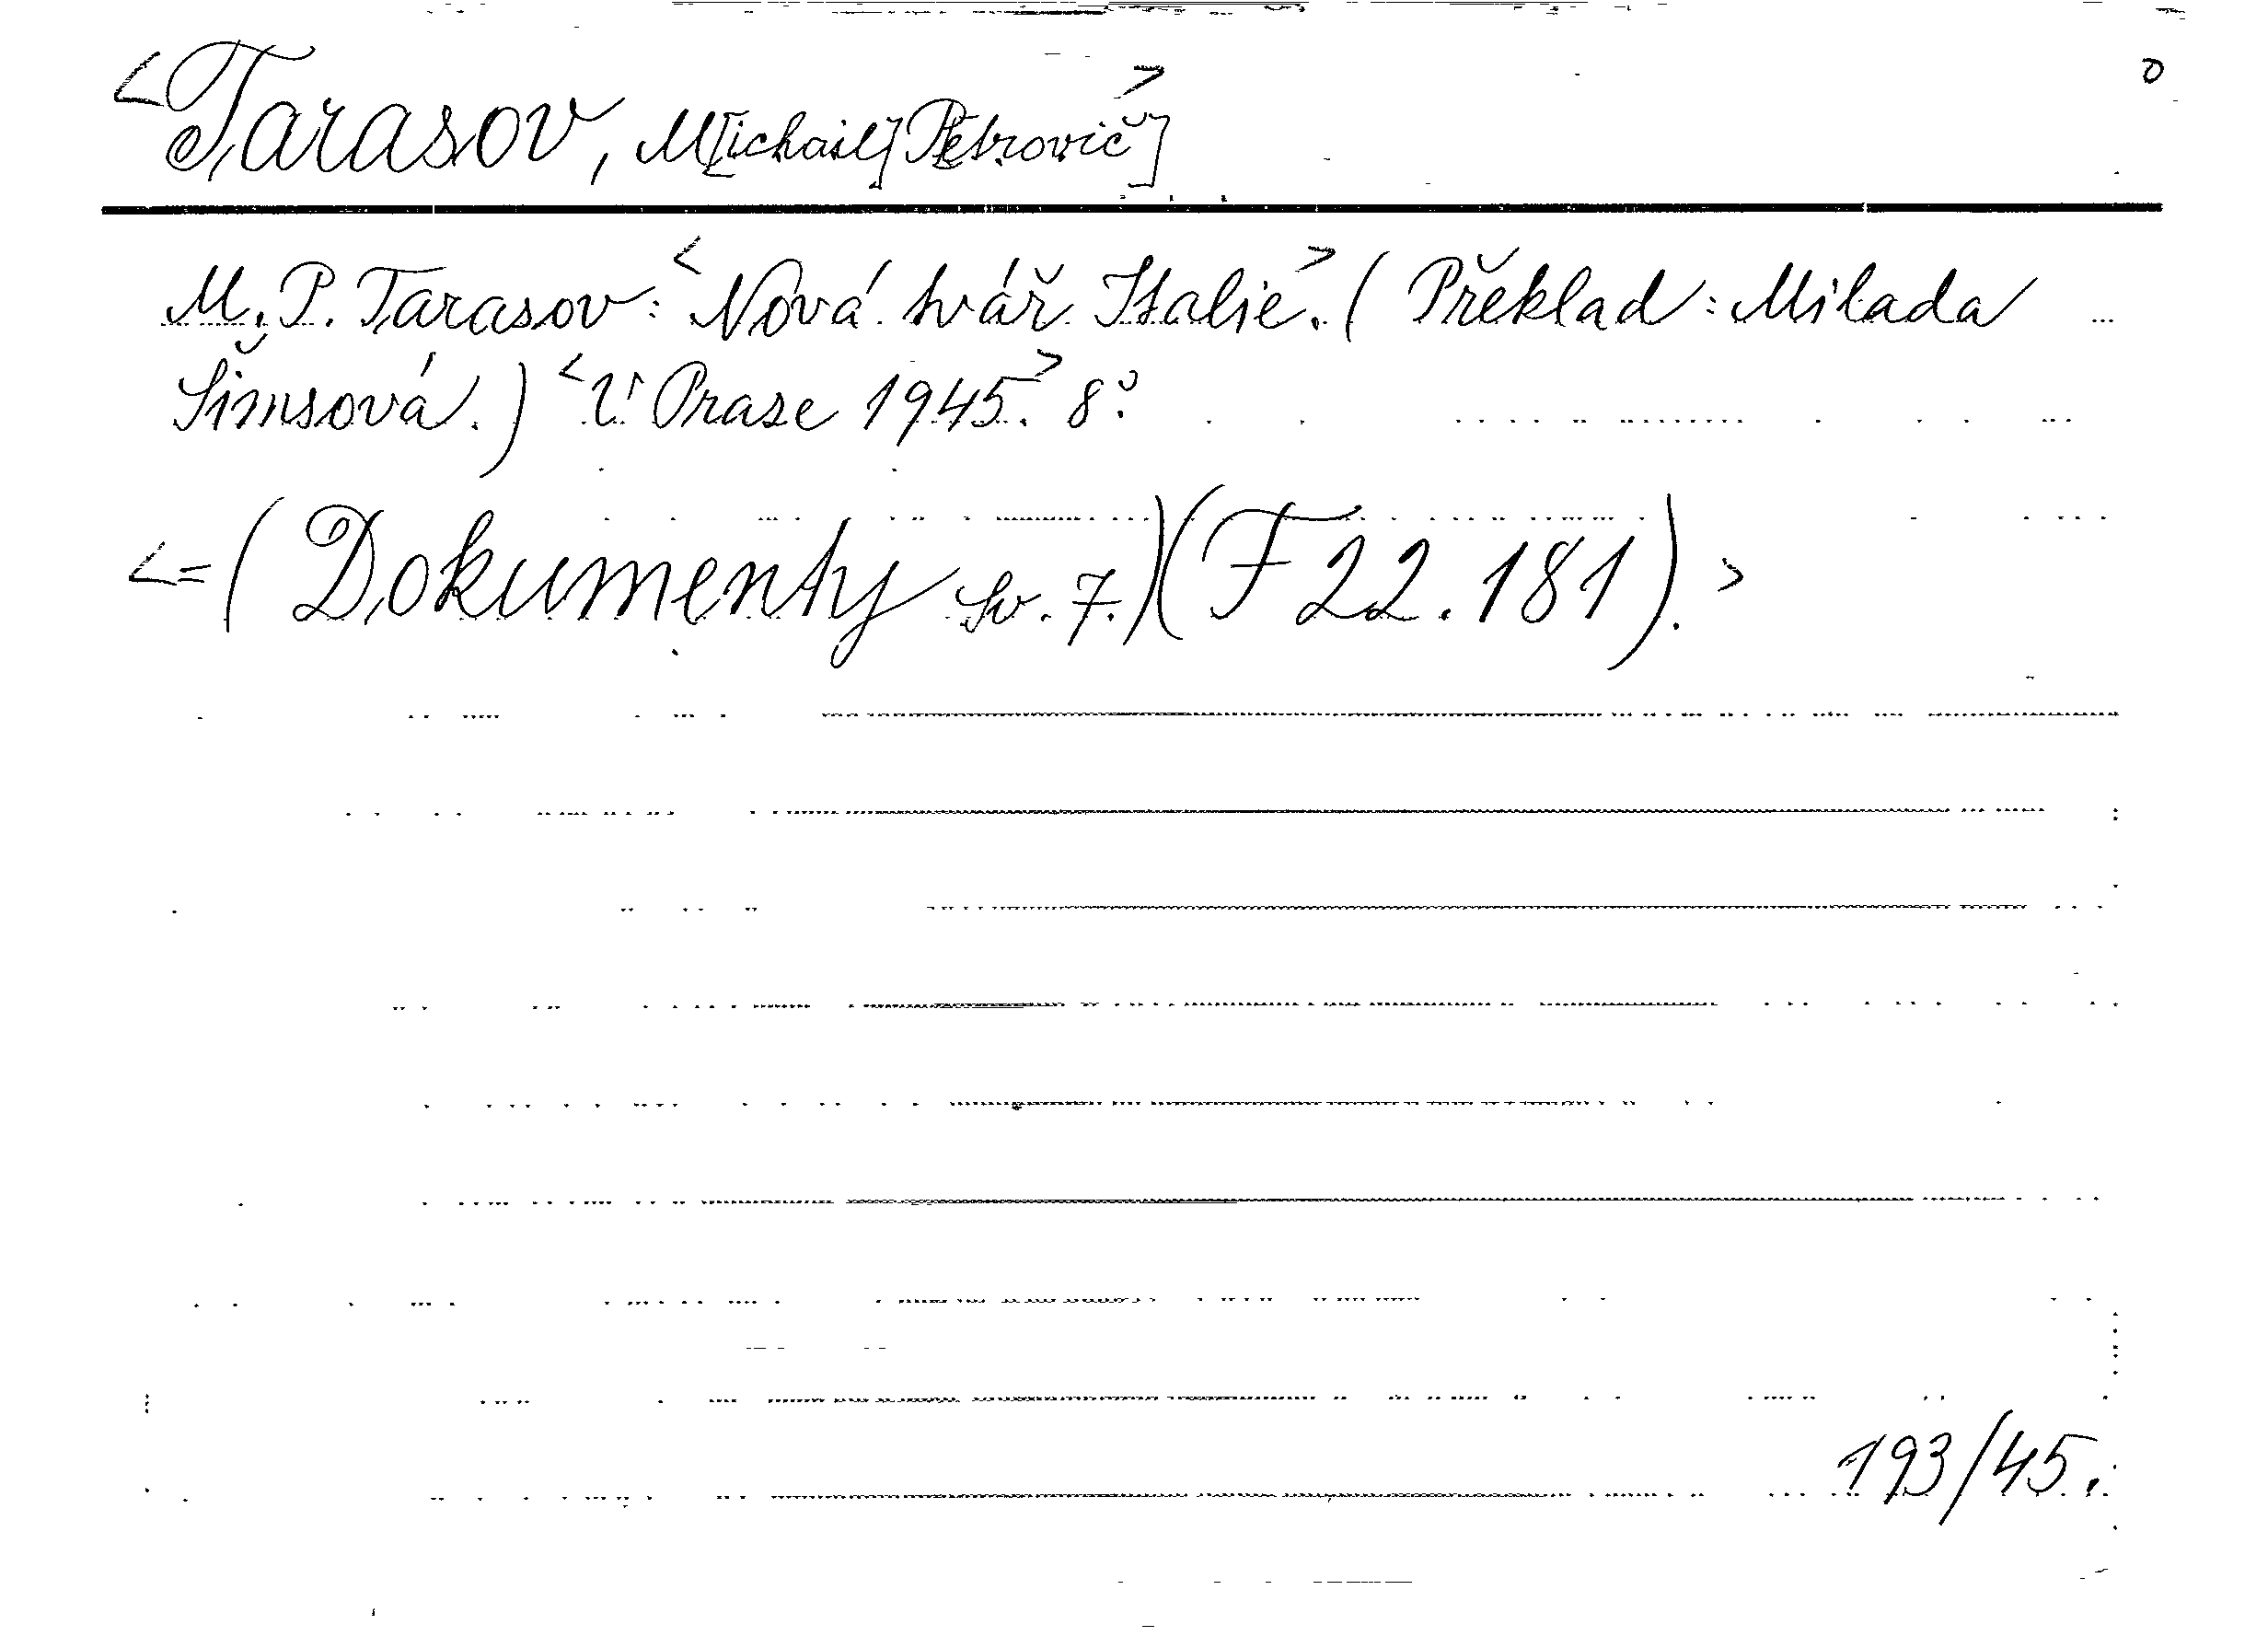 <Tarasov, M[ichail] P[etrovič]> o
M. P. Tarasov: <Nová tvář Italie>. (Překlad: Milada
Šimsová.) <V Praze 1945.> 8°.
<= (Dokumenty sv. 7.) (F 22.181).>
193/45.